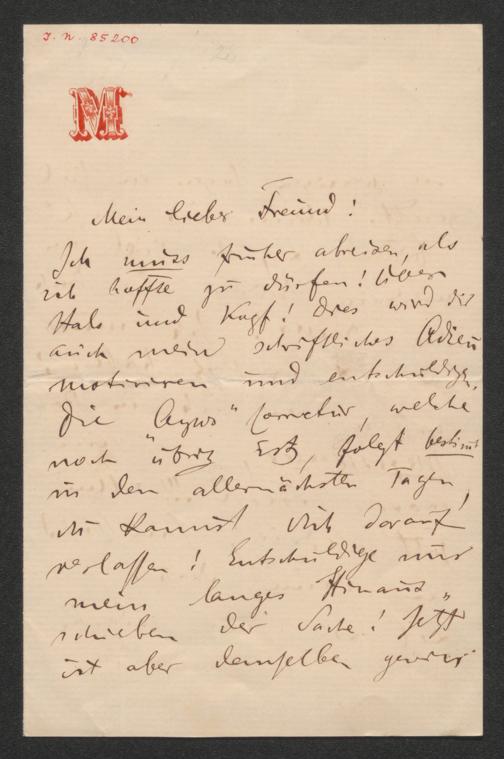 J. N. 85200
M
Mein lieber Freund!
Ich muss früher abreisen, als
ich hoffte zu dürfen! Über
Hals und Kopf! Dies wird dir
auch mein schriftliches Adieu
motiviren und entschuldigen.
Die correctur, welche
noch übrig ist, folgt bestimt
in den allernächsten Tagen,
du kannst dich darauf
verlassen! Entschuldige nur
mein langes Hinaus„
schieben der Sache! Jetzt
ist aber demselben gewiss